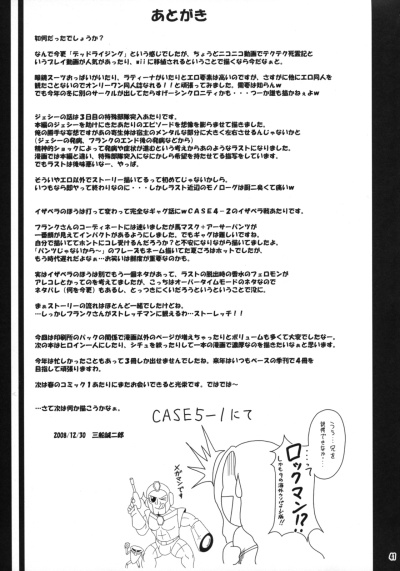 あとがき
如何だったでしょうか？
なんで今更「デッドライジング」という感じでしたが、ちょうどニコニコ動画でテクテク死霊記と
いうプレイ動画が人気があったり、wiiに移植されるということで描くなら今だなぁと。
眼鏡スーツおっぱいがいたり、ラティーナがいたりとエロ要素は高いのですが、さすがに他にエロ同人を
観たことないのでオンリーワン同人誌なれる！！と頑張ってみました。需要は知らんw
でも今年の冬に別のサークルが出してたらすげーシンクロニティかも・・・つーか誰も描かねぇよw
ジェシーの話は３日目の特殊部隊突入あたりです。
本編のジェシーを助けにきたあたりのエピソードを想像を膨らませて描きました。
俺の勝手な妄想ですがあの寄生体は宿主のメンタルな部分に大きく左右させるんじゃないかと
（ジェシーの発病、フランクのエンド後の発病などから）
精神的ショックによって発病や症状が進むという考えからあのようなラストになりました。
漫画では本編と違い、特殊部隊突入になにかしら希望を持たせてる描写をしています。
でもラストは後味悪いなー、やっぱ。
そういやエロ以外でストーリー描いてるって初めてじゃないかしら。
いつもなら即ヤって終わりなのに・・・しかしラスト近辺のモノローグは厨ニ臭くて痛いw
イザベラのほうは打って変わって完全なギャグ話にwCASE4-2のイザベラ戦あたりです。
フランクさんのコーディネートには迷いましたが馬マスク＋アーサーパンツが
一番絵的に見えてインパクトがあるようにしました。でもギャグは難しいですね。
自分で描いててホントにコレ受けるんだろうか？と不安になりながら描いてましたよ。
「パンツじゃないから～」のフレーズもネーム描いてた夏ごろはホットでしたが、
もう時期遅れだよなぁ…お笑いは鮮度が重要なのかも。
実はイザベラのほうは別でもう一個ネタがあって、ラストの脱出時の香水のフェロモンが
アレコレとかってのを考えてましたが、こっちはオーバータイムモードのネタなので
ネタバレ（何を今更）もあるし、とっつきにくいだろうというということで没に。
まぁストーリーの流れはほとんど一緒でしたけどね。
…しっかしフランクさんがストレッチマンに観えるわ…ストーレッチ！！
今回は印刷所のパックの関係で漫画以外のページが増えちゃったりとボリュームも多くて大変でしたなー。
次の本はヒロイン一人にしたり、シチュを絞ったりして一本の漫画で濃厚なのを描きたいなぁと思います。
今年は忙しかったこともあって３冊しか出せませんでしたね。来年はいつもペースの季刊で４冊を
目指して頑張りますわ。
次は春のコミック１あたりにまたお会いできると光栄です。ではでは～
…さて次は何か描こうかなぁ。
2008/12/30　三船誠二郎
CASE5-1にて
メガマンです
ロックマン!?
41